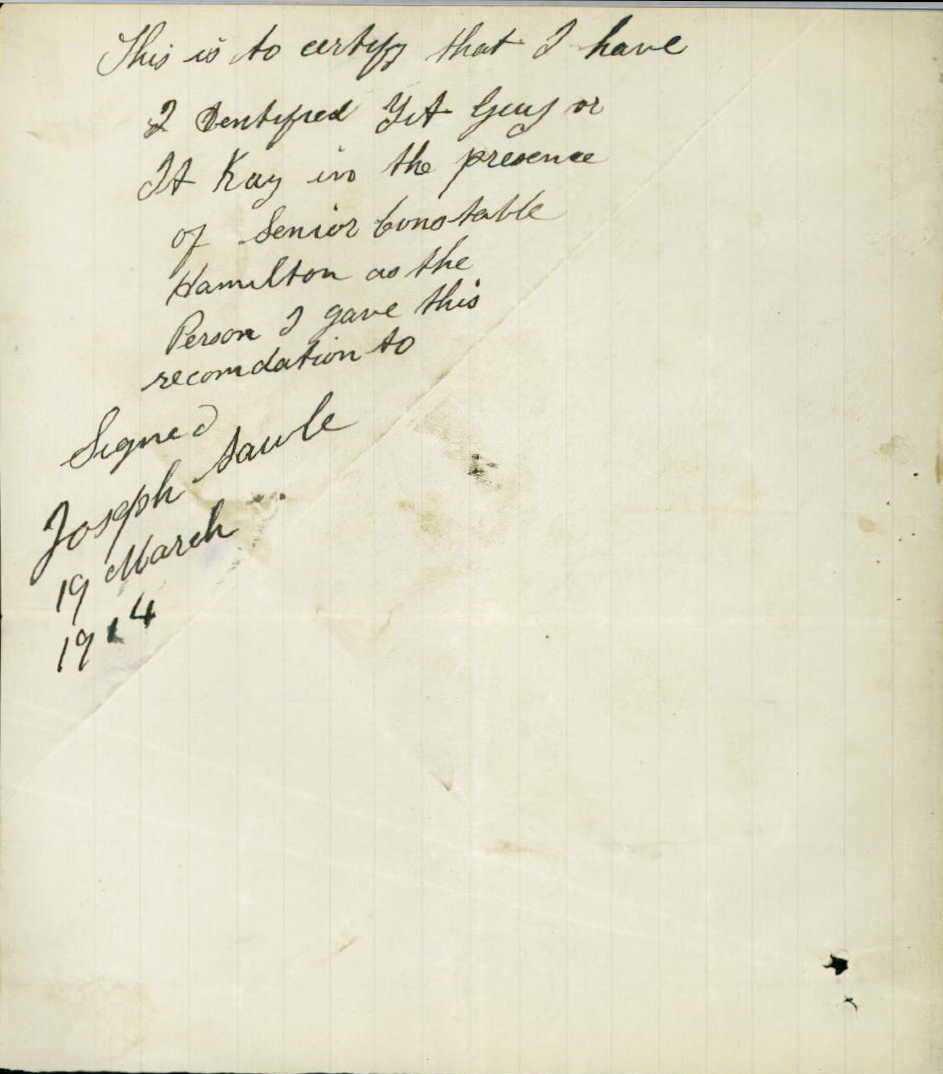 This is to certify that I have
I Dentified Yit Guy or
It Kay in the presence
of Senior Constable
Hamilton as the
Person I gave this
recomdation to
Signed
Joseph Sawle
19 March
1914